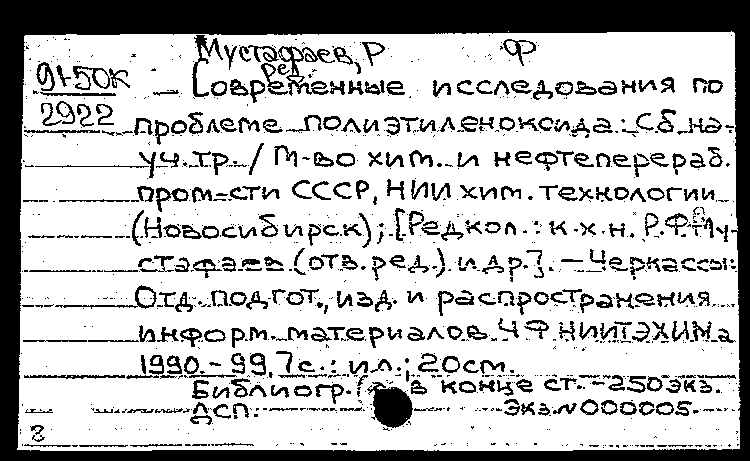 Мустафаев, Р Ф
ред.
91-50К
2922
— Современные исследования по
проблеме полиэтиленоксида: Сб. на-
уч. тр. / М-во хим. и нефтеперераб.
пром-сти СССР, НИИ хим. технологии
(Новосибирск); [Редкол.: к.х.н. Р.Ф. Му-
стафаев (отв. ред.) и др.]. — Черкассы:
Отд. подгот., изд. и распространения
информ. материалов ЧФ НИИТЭХИМа
1990. - 99,7с.: ил.; 20см.
Библиогр. в конце ст. - 250экз.
ДСП. Экз. N000005.